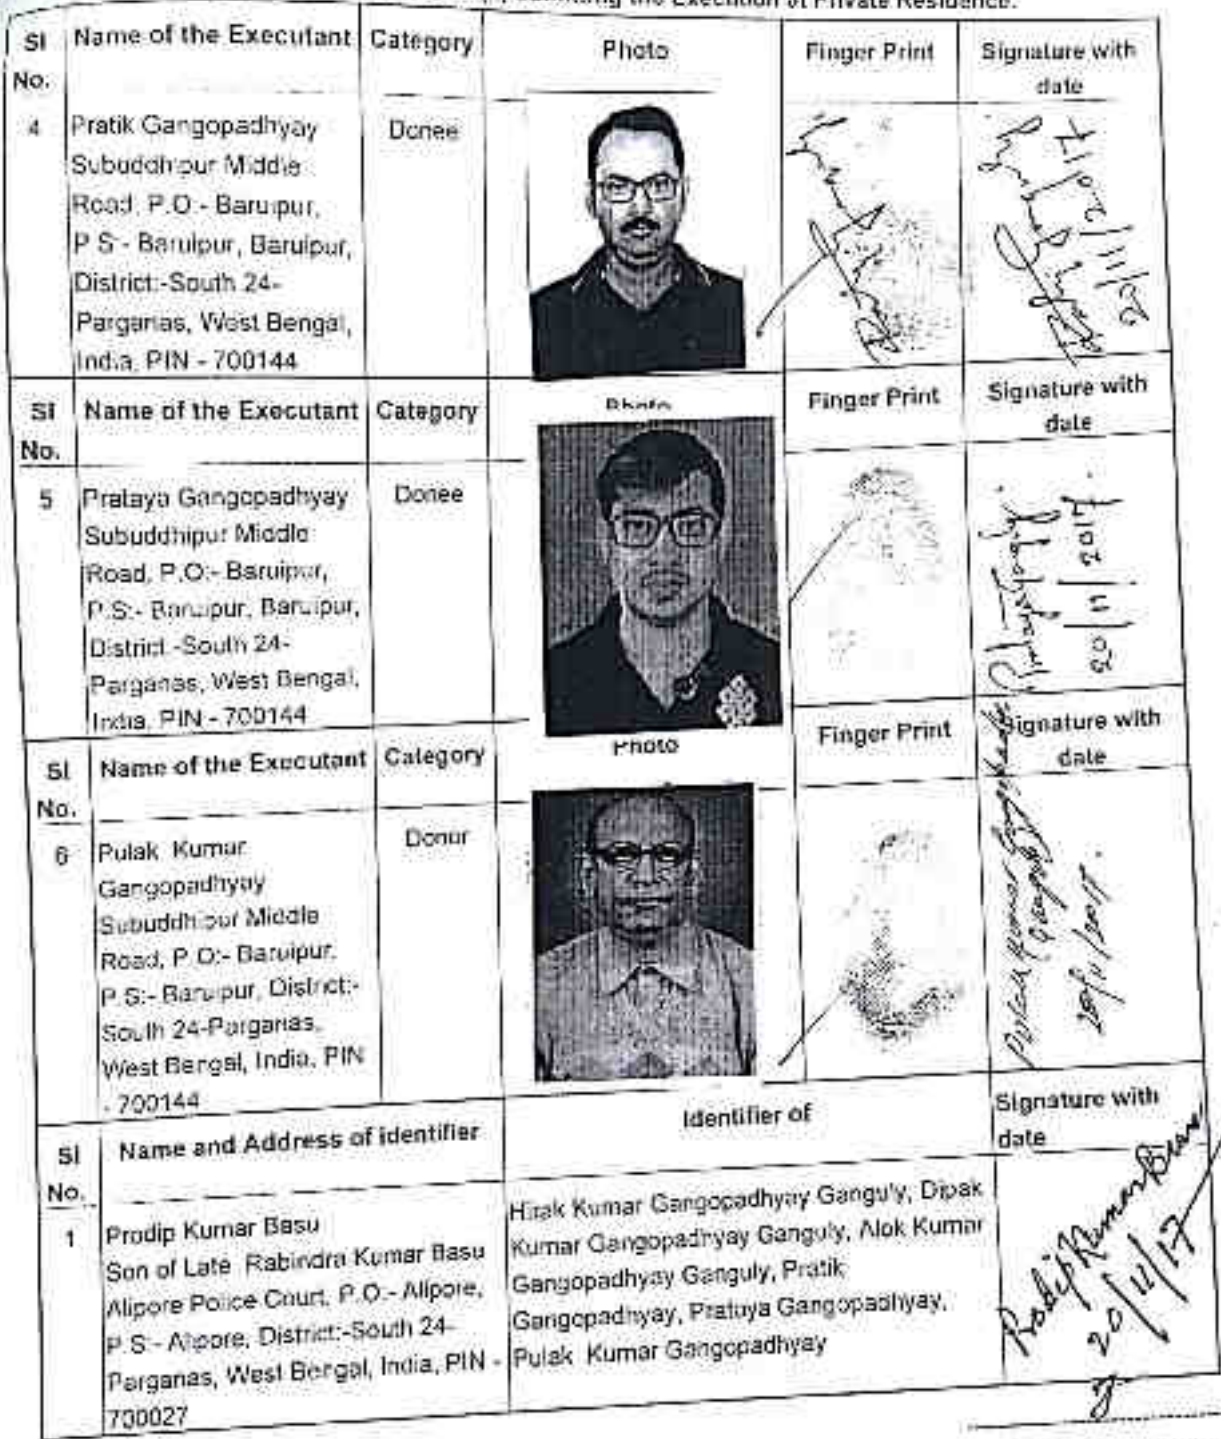 the Execution at Private Residence.
Sl No. Name of the Executant Category Photo Finger Print Signature with date
4 Pratik Gangopadhyay Donee
Subuddhipur Middle
Road, P.O:- Baruipur,
P.S:- Baruipur, Baruipur,
District:-South 24-
Parganas, West Bengal,
India, PIN - 700144
20/11/2017
Sl No. Name of the Executant Category Photo Finger Print Signature with date
5 Prataya Gangopadhyay Donee
Subuddhipur Middle
Road, P.O:- Baruipur,
P.S:- Baruipur, Baruipur,
District:-South 24-
Parganas, West Bengal,
India, PIN - 700144
20/11/2017
Sl No. Name of the Executant Category Photo Finger Print Signature with date
6 Pulak Kumar Donor
Gangopadhyay
Subuddhipur Middle
Road, P.O:- Baruipur,
P.S:- Baruipur, District:-
South 24-Parganas,
West Bengal, India, PIN
- 700144
Pulak Kumar Gangopadhyay
20/11/2017
Sl No. Name and Address of identifier Identifier of Signature with date
1 Prodip Kumar Basu
Son of Late Rabindra Kumar Basu
Alipore Police Court, P.O:- Alipore,
P.S:- Alipore, District:-South 24-
Parganas, West Bengal, India, PIN -
700027
Hirak Kumar Gangopadhyay Ganguly, Dipak
Kumar Gangopadhyay Ganguly, Alok Kumar
Gangopadhyay Ganguly, Pratik
Gangopadhyay, Prataya Gangopadhyay,
Pulak Kumar Gangopadhyay
Prodip Kumar Basu
20/11/17